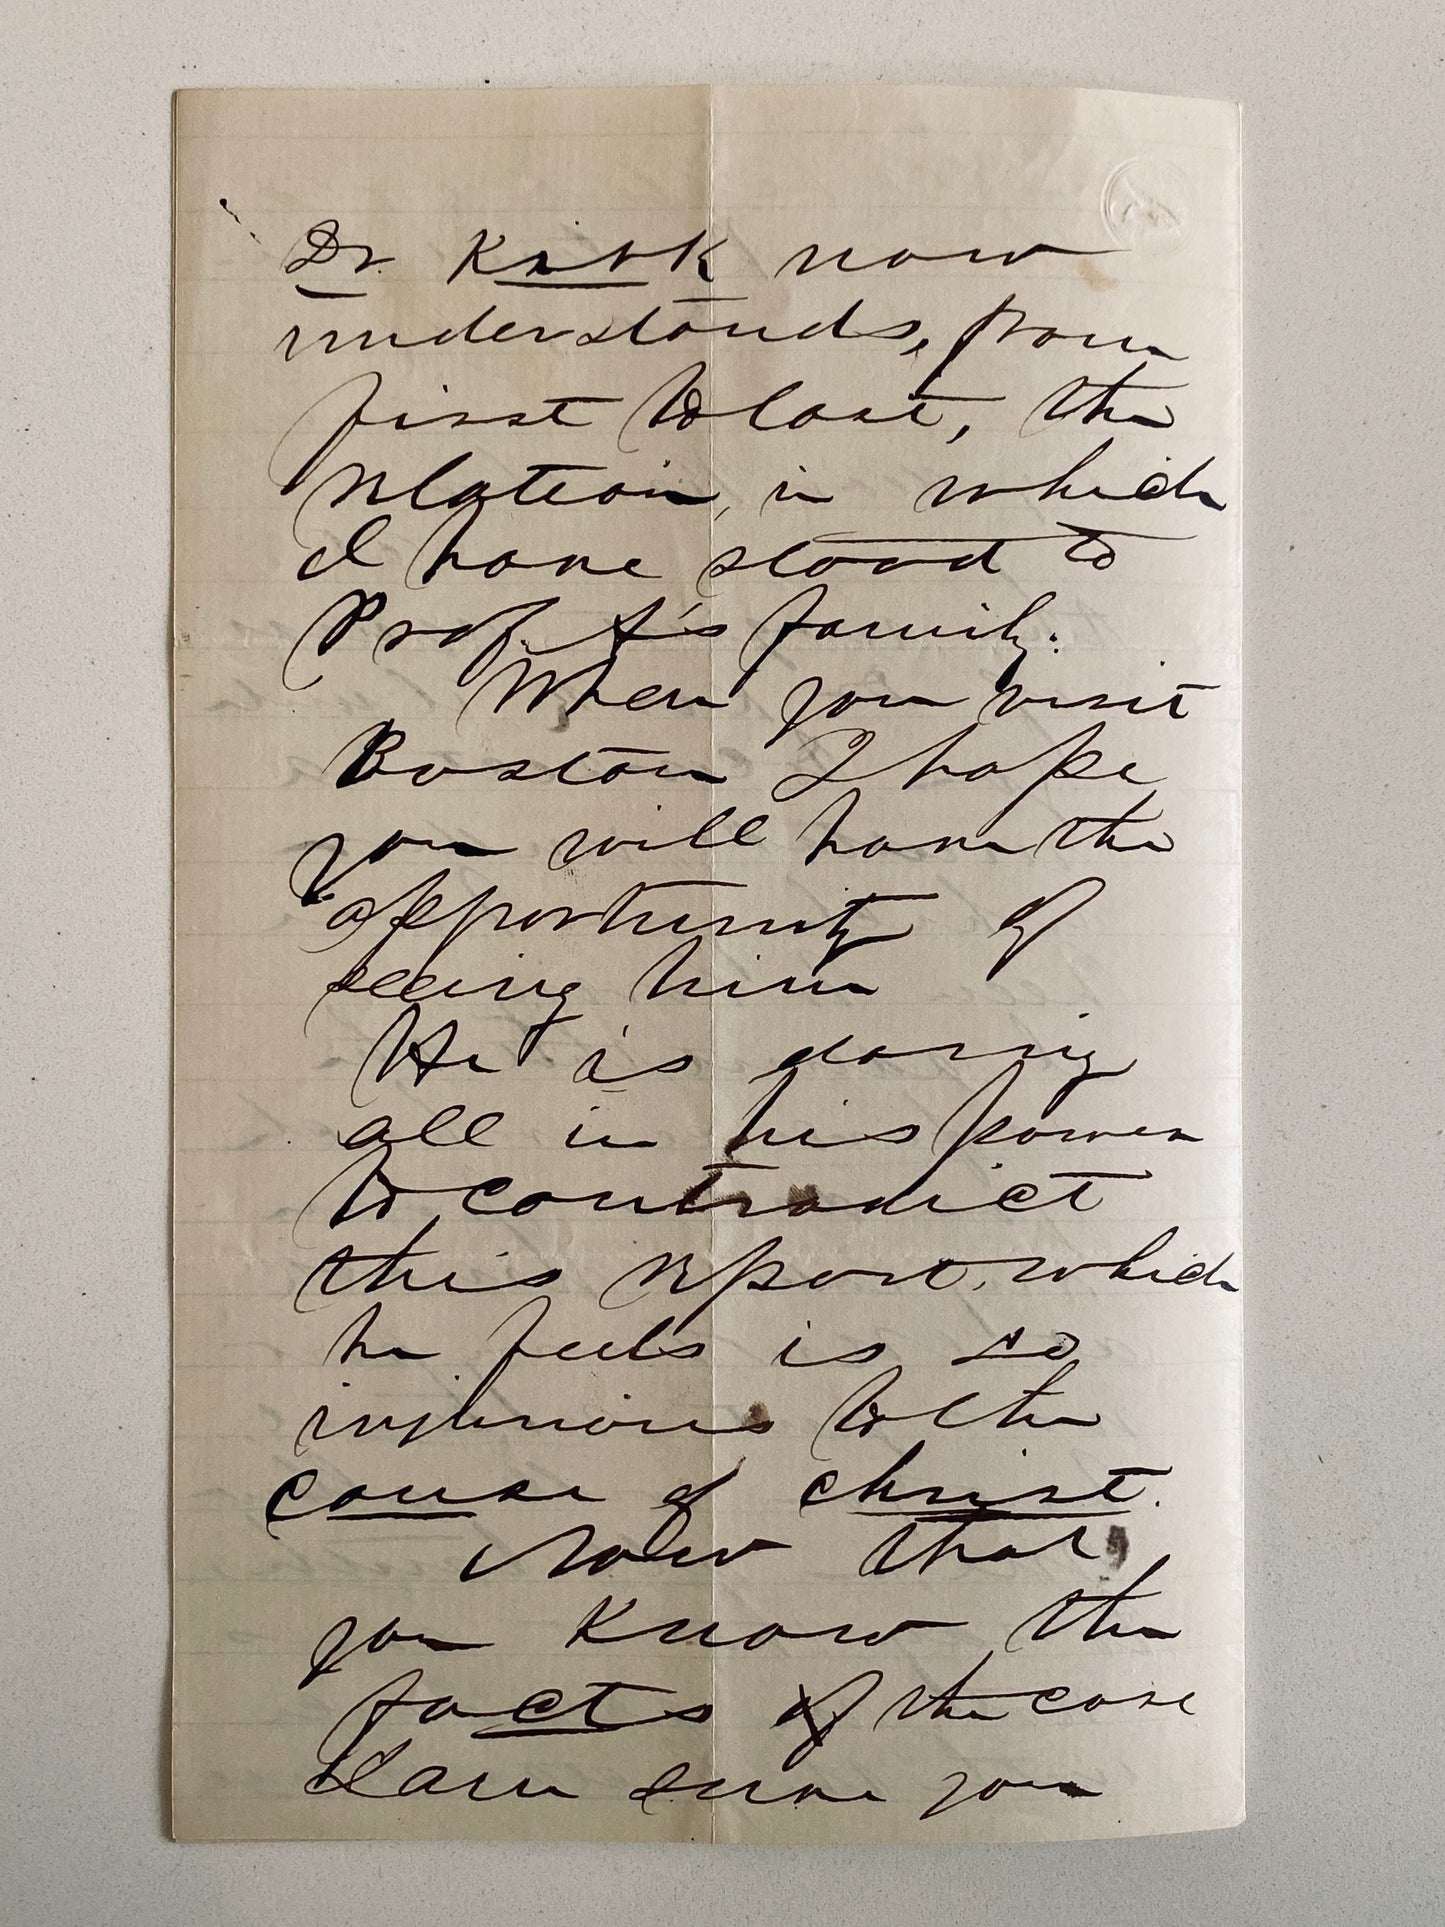 Dr. Kirk now
understands, from
first to last, the
relation, in which
I have stood to
Prof. A's family.
When you visit
Boston I hope
you will have the
opportunity of
seeing him
He is doing
all in his power
to contradict
this report, which
he feels is so
injurious to the
cause of Christ.
Now that
you know the
facts of the case
I am sure you